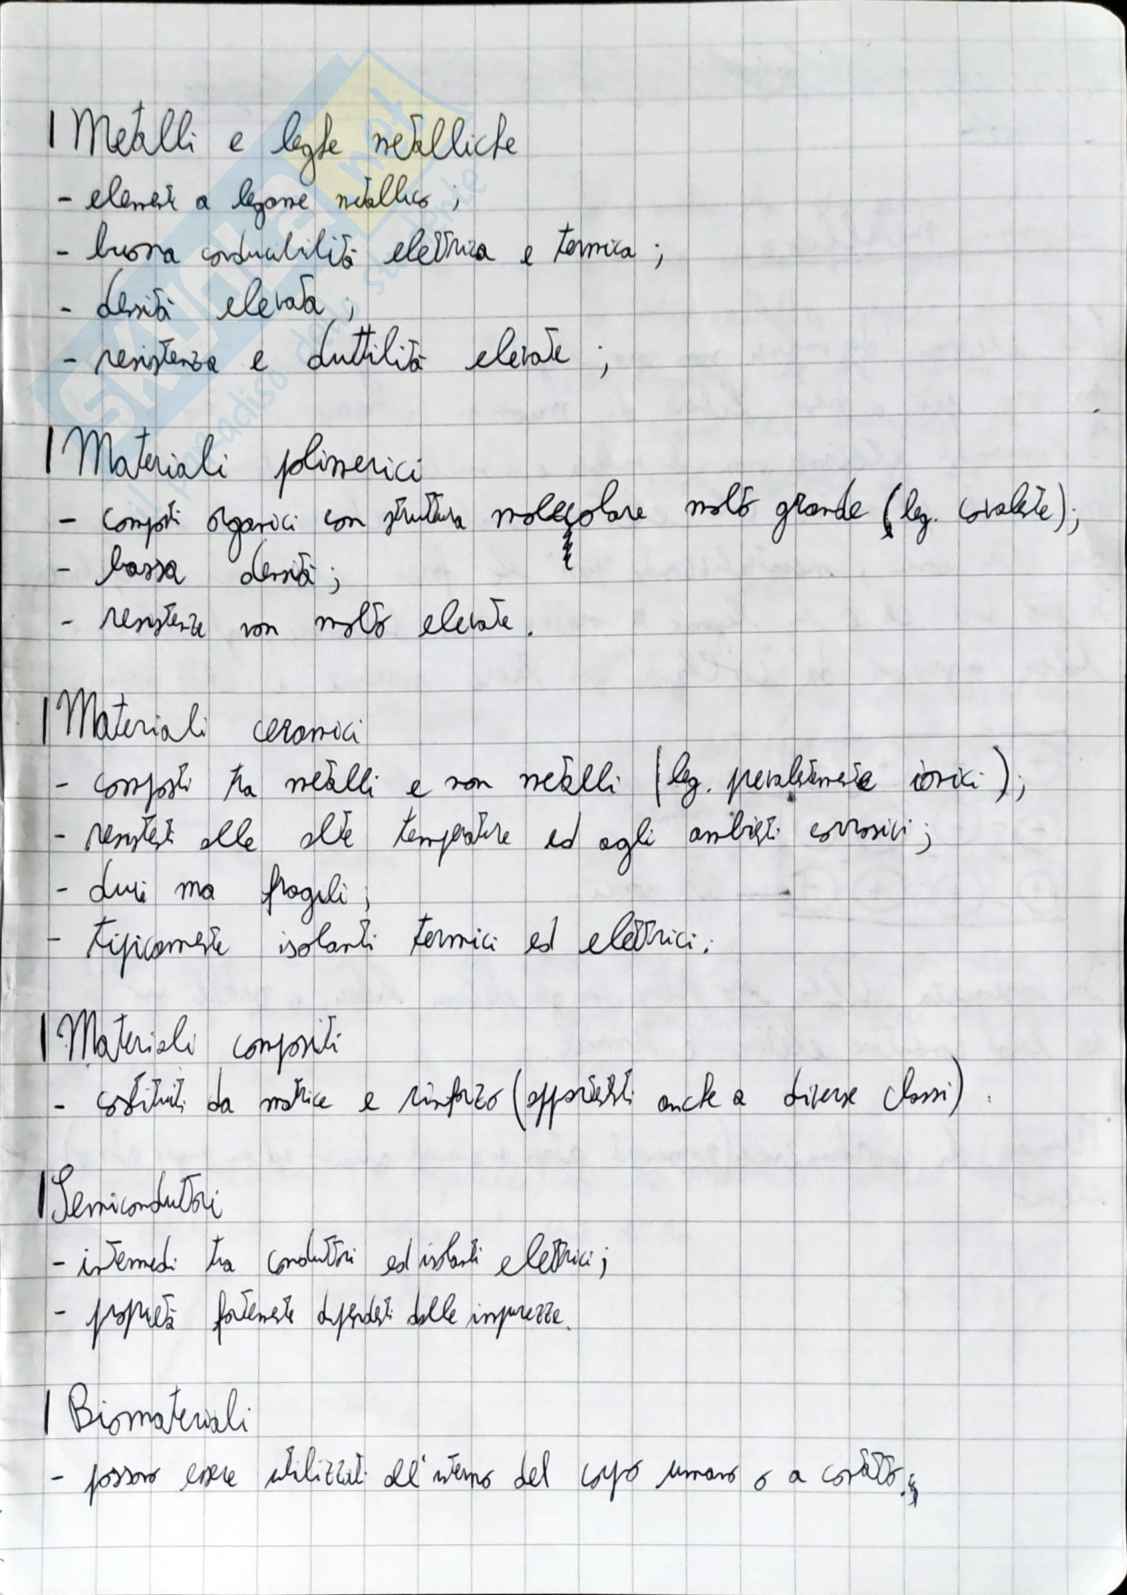 Metalli e leghe metalliche
- elementi a legame metallico;
- buona conducibilità elettrica e termica;
- densità elevata;
- resistenza e duttilità elevate;
Materiali polimerici
- composti organici con struttura molecolare molto grande (leg. covalente);
- bassa densità;
- resistenze non molto elevate.
Materiali ceramici
- composti tra metalli e non metalli (leg. prevalentemente ionici);
- resistenti alle alte temperature ed agli ambienti corrosivi;
- duri ma fragili;
- tipicamente isolanti termici ed elettrici.
Materiali compositi
- costituiti da matrice e rinforzo (appartenenti anche a diverse classi).
Semiconduttori
- intermedi tra conduttori ed isolanti elettrici;
- proprietà fortemente dipendenti dalle impurezze.
Biomateriali
- possono essere utilizzati all'interno del corpo umano o a contatto.